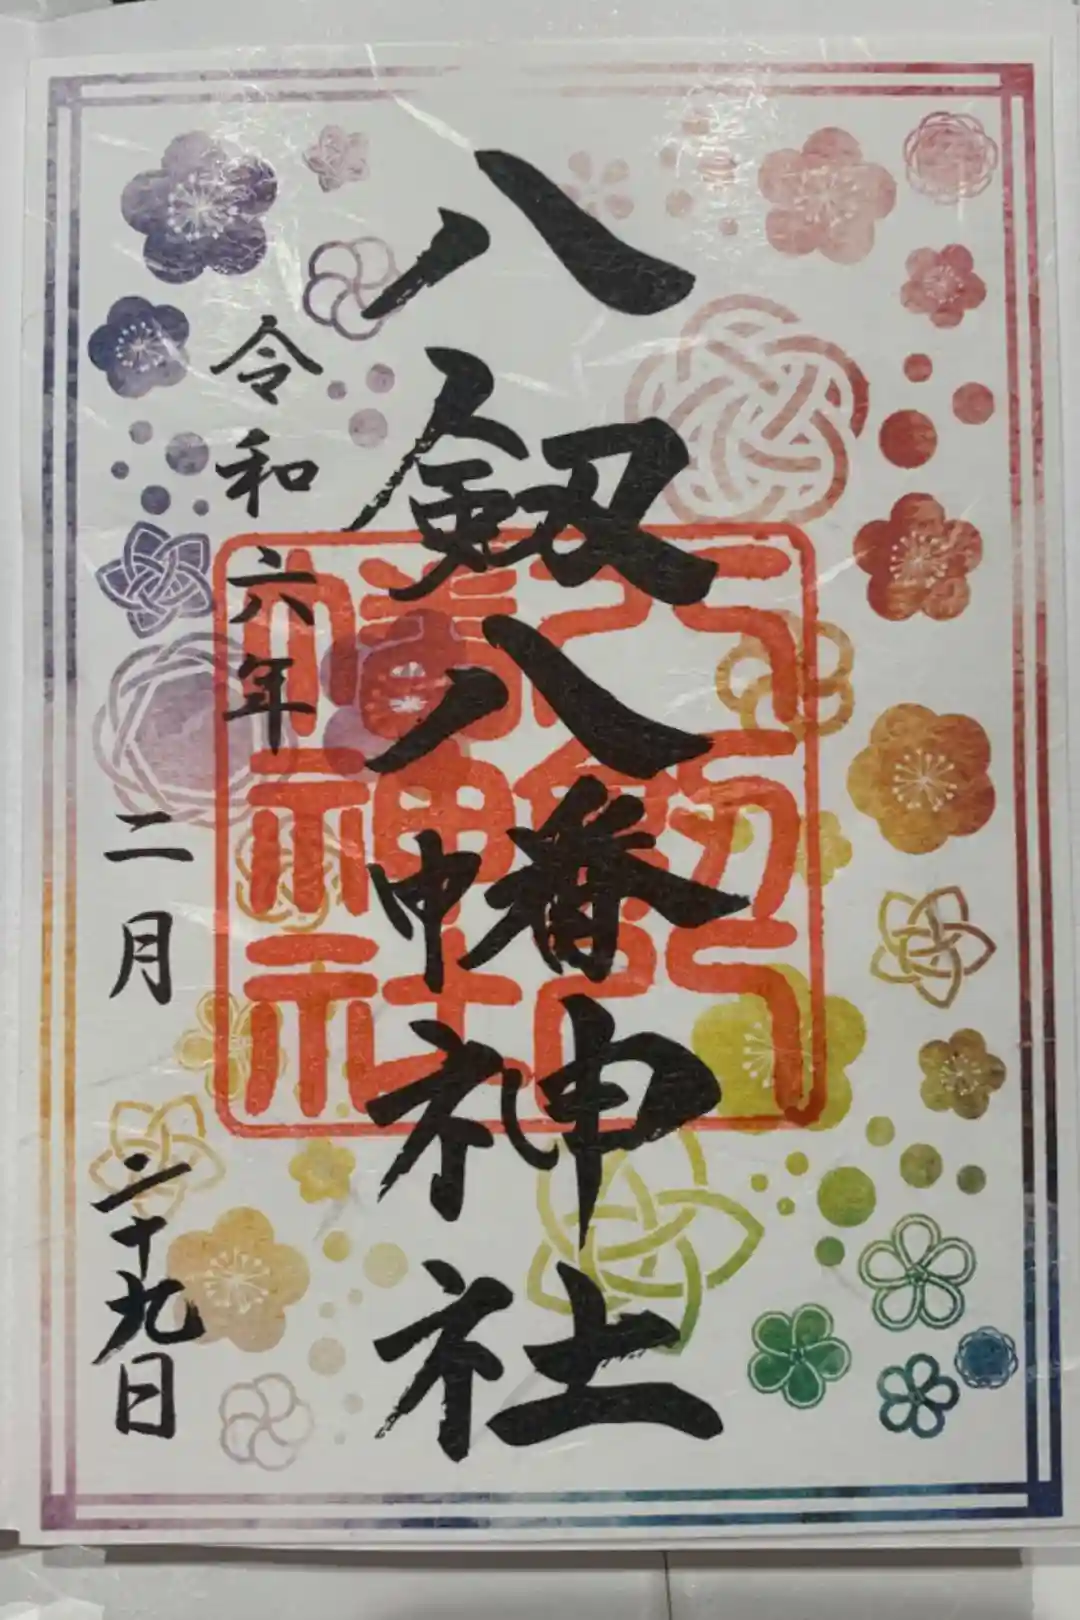 八剱八幡神社
八剱八
幡神社
令和六年
二月二十九日